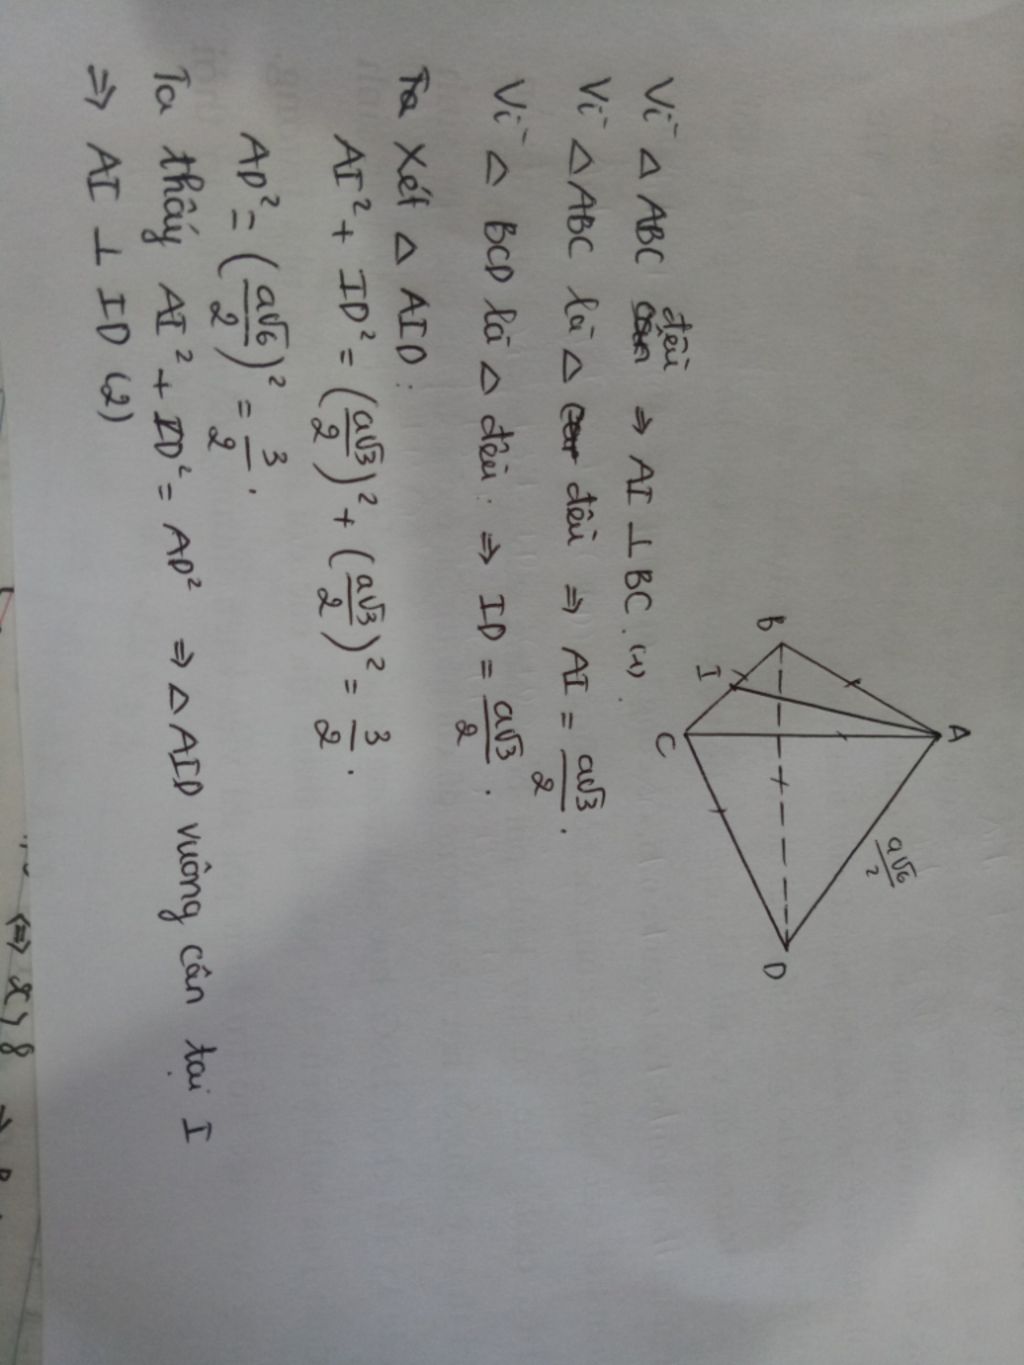 A
B
I
C
D
a√6/2
Vì △ ABC đều ⇒ AI ⊥ BC. (1)
Vì △ ABC là △ đều ⇒ AI = a√3/2.
Vì △ BCD là △ đều: ⇒ ID = a√3/2.
Ta xét △ AID:
AI² + ID² = (a√3/2)² + (a√3/2)² = 3/2.
AD² = (a√6/2)² = 3/2.
Ta thấy AI² + ID² = AD² ⇒ △ AID vuông cân tại I
⇒ AI ⊥ ID (2)
⇔ x > 8